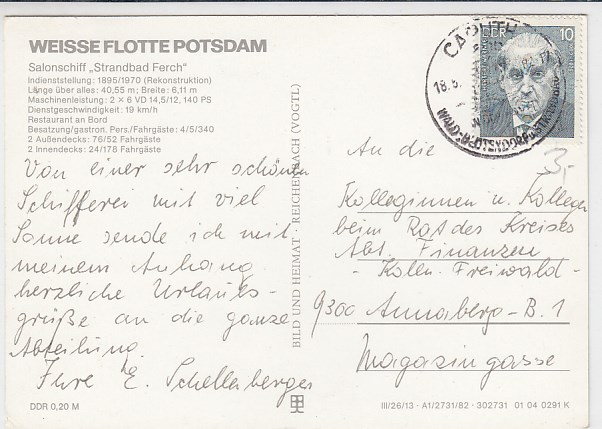 WEISSE FLOTTE POTSDAM
Salonschiff „Strandbad Ferch“
Indienststellung: 1895/1970 (Rekonstruktion)
Länge über alles: 40,55 m; Breite: 6,11 m
Maschinenleistung: 2 × 6 VD 14,5/12, 140 PS
Dienstgeschwindigkeit: 19 km/h
Restaurant an Bord
Besatzung/gastron. Pers/Fahrgäste: 4/5/340
2 Außendecks: 76/52 Fahrgäste
2 Innendecks: 24/178 Fahrgäste
Von einer sehr schönen
Schifferei mit viel
Sonne sende ich mit
meinem Anhang
herzliche Urlaubs-
grüße an die ganze
Abteilung.
Ihre E. Schellenberger
DDR 0,20 M
BILD UND HEIMAT · REICHENBACH (VOGTL)
CAPUTH
18.5.
DDR 10
3,-
An die
Kolleginnen u. Kollegen
beim Rat des Kreises
Abt. Finanzen
- Kolln. Freiwald -
9300 Annaberg-B. 1
Magazingasse
III/26/13 · A1/2731/82 · 302731 01 04 0291 K